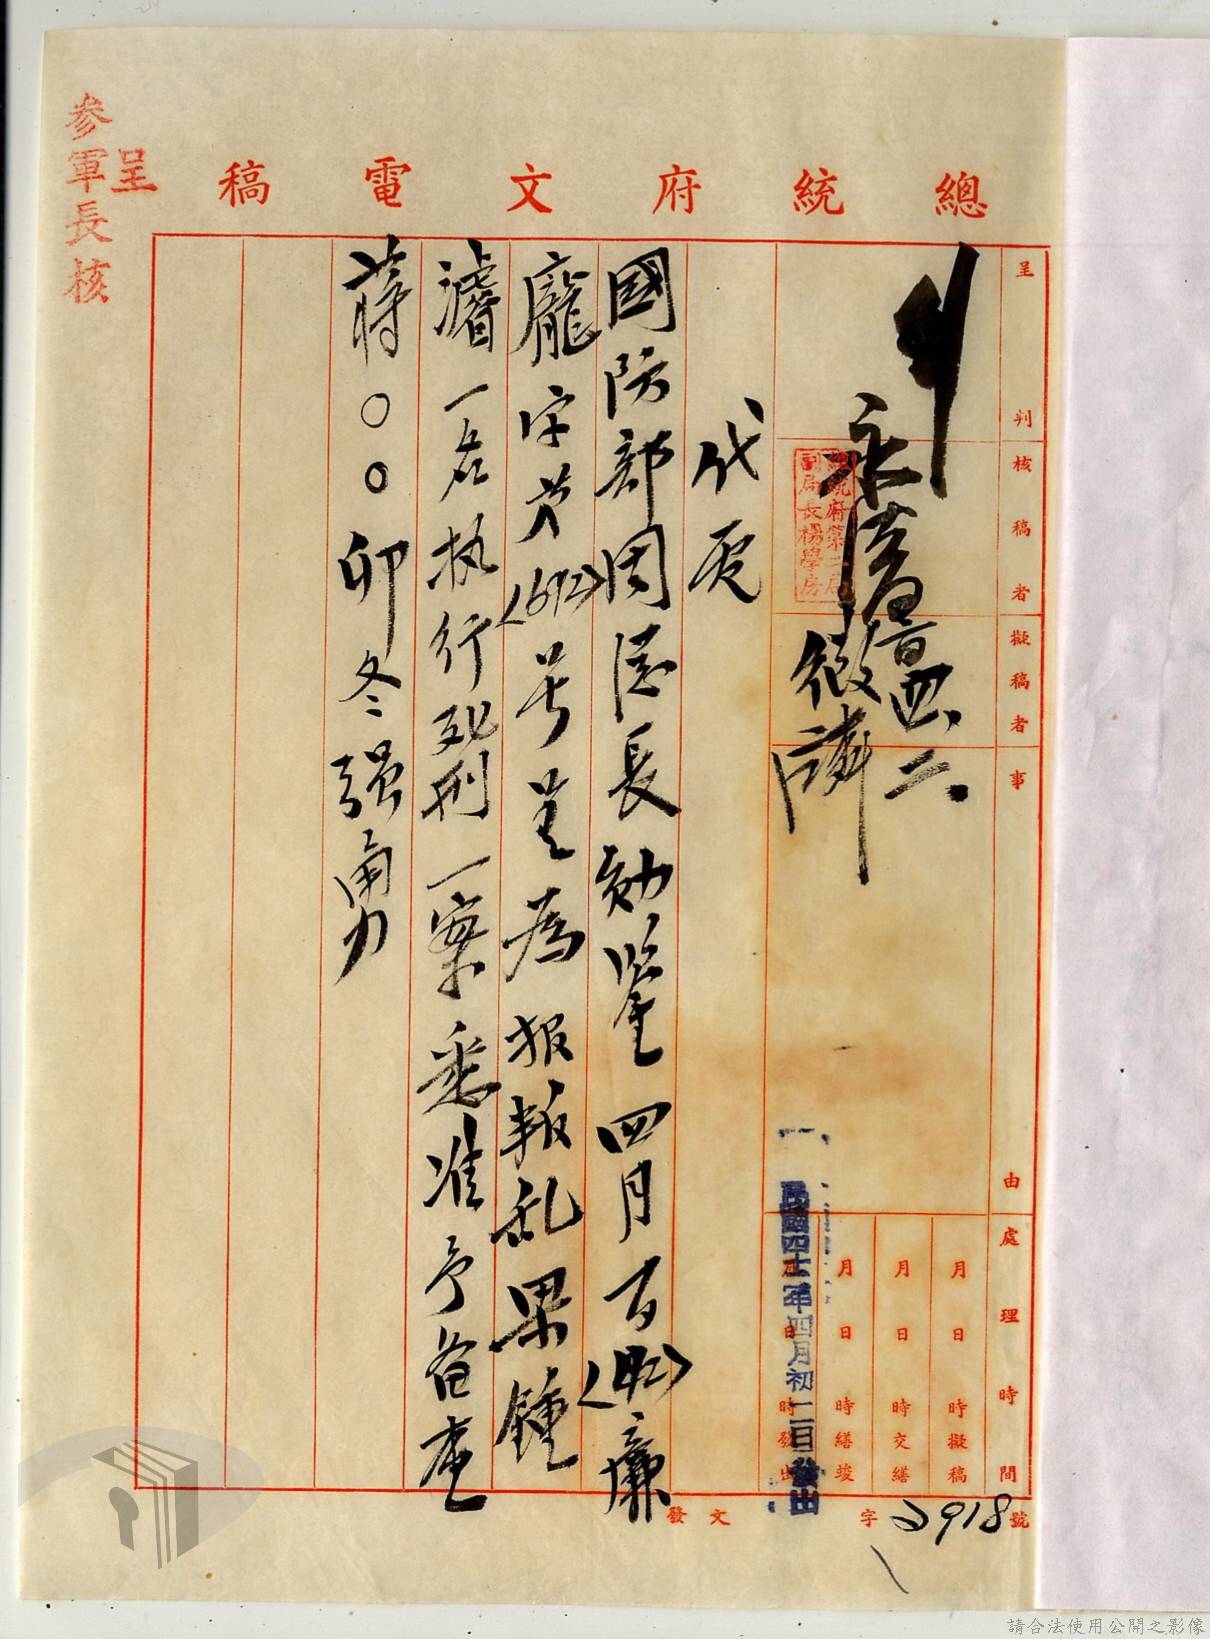 總統府文電稿
呈
參軍長核
呈判
核稿者
擬稿者
事由
處理時間
月日時擬稿
月日時交繕
月日時繕竣
月日時發出
總統府第二局
副局長楊學房
民國四十二年四月初二日發出
代電
國防部周總長勛鑒四月一日(42)廉
龐字第(692)号呈為報叛乱果鍾
濬一名执行死刑一案悉准予备查
蔣○○卯冬强勇
發文 字2918號
請合法使用公開之影像